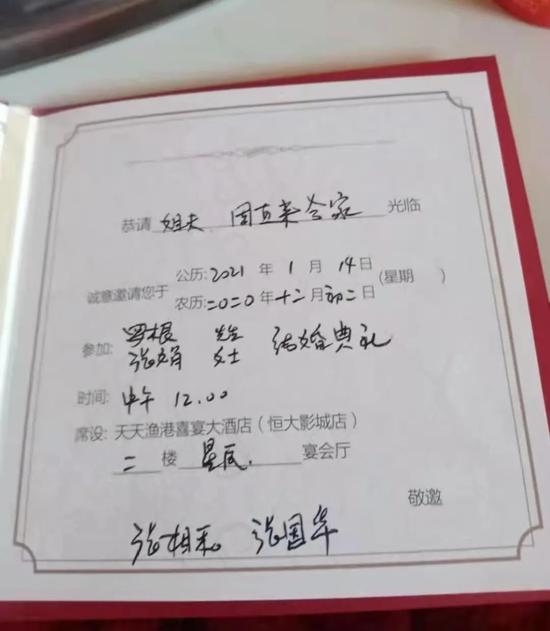 恭请 姐夫 周直来全家 光临
诚意邀请您于
公历:2021年1月14日
农历:二〇二〇年十二月初二日
(星期 )
参加:
罗根 先生
张娟 女士
结婚典礼
时间:中午 12.00
席设:天天渔港喜宴大酒店(恒大影城店)
二楼 星辰 宴会厅
敬邀
张相 张国华